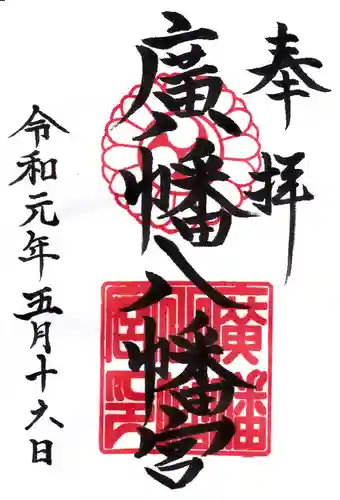 奉拝
廣八幡八幡宮
令和元年五月十六日
廣八幡